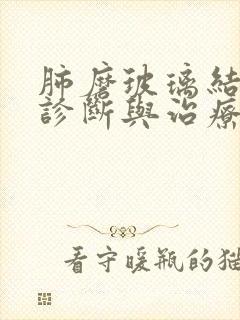 肺磨玻璃結
診斷與治療
看守暖瓶的猫